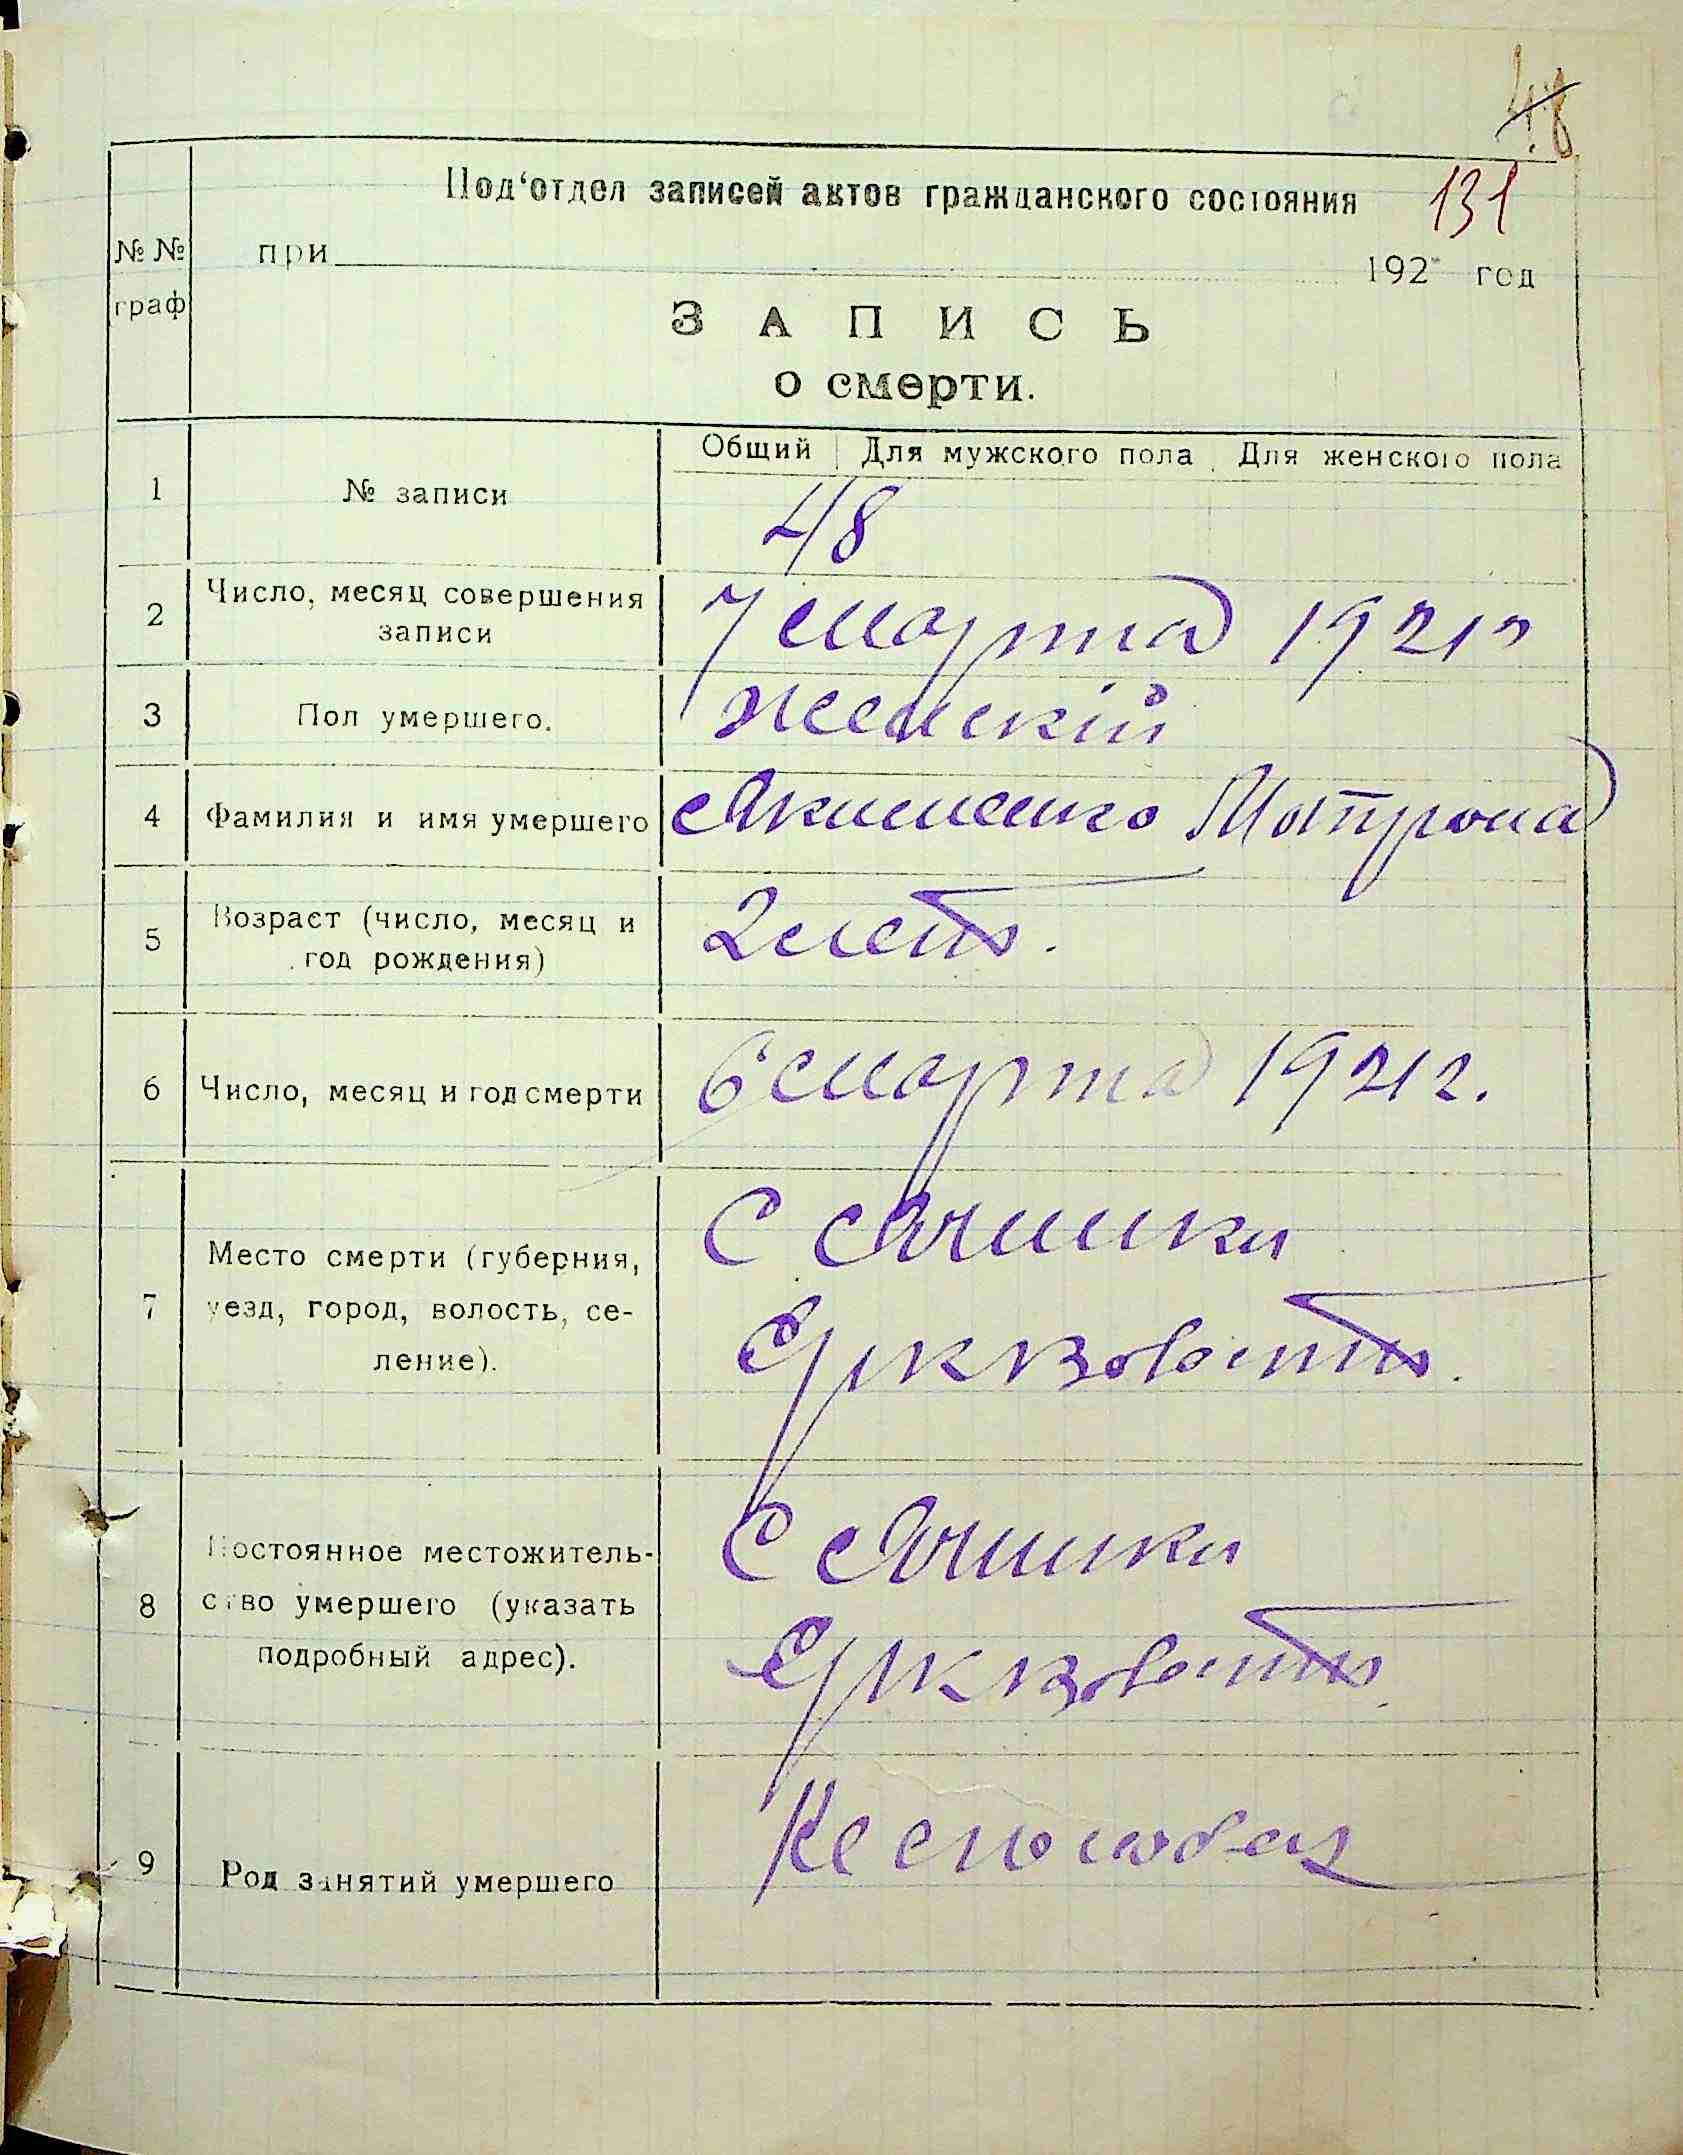 48
131
Под‘отдел записей актов гражданского состояния
№ №
граф
при 192 год
ЗАПИСЬ
о смерти.
Общий Для мужского пола Для женского пола
1 № записи 48
2 Число, месяц совершения
записи
7 марта 1921 г
3 Пол умершего. Женскій
4 Фамилия и имя умершего Якименко Матрона
5 Возраст (число, месяц и
год рождения)
2 летъ.
6 Число, месяц и год смерти 6 марта 1921 г.
7 Место смерти (губерния,
уезд, город, волость, се-
ление).
С Ячники
8 Постоянное местожитель-
ство умершего (указать
подробный адрес).
С Ячники
9 Род занятий умершего